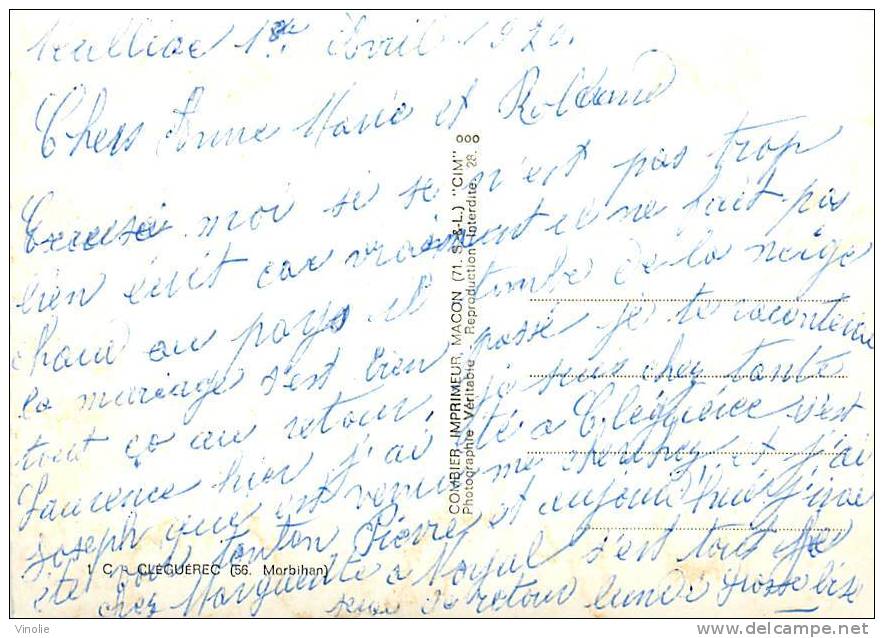 1er Avril 19
Chers Anne Marie et Rolland
Excuse moi si se n'est pas trop
bien écrit car vraiment il ne fait pas
chaud au pays il tombe de la neige
la mariage s'est bien passé je te raconterai
tout ça au retour, je suis chez tante
Laurence hier j'ai été a Cléguérec s'est
Joseph que est venu me chercher et j'ai
été voir tonton Pierre et aujourd'hui j'irai
chez Marguerite a Noyal s'est tout je
de retour lundi Grosse bise
COMBIER IMPRIMEUR, MACON (71. S.-&-L.) "CIM" 000
Photographie Véritable - Reproduction Interdite. 28.
CLEGUEREC (56. Morbihan)
© Vinolie
www.delcampe.net